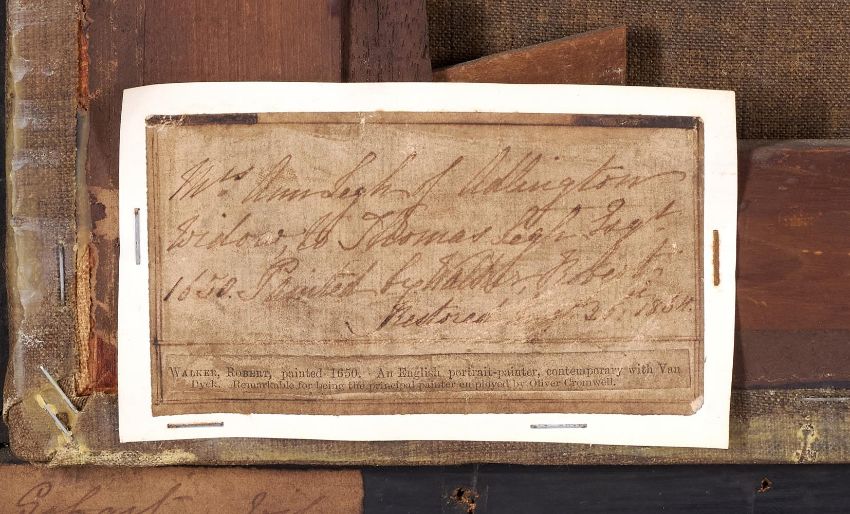 Mrs Ann Legh of Adlington
Widow, to Thomas Legh Esqr.
1650. Painted by Walker, Robert
Restored Augt. 26th 1854.
WALKER, ROBERT, painted 1650. An English portrait-painter, contemporary with Van
Dyck. Remarkable for being the principal painter employed by Oliver Cromwell.